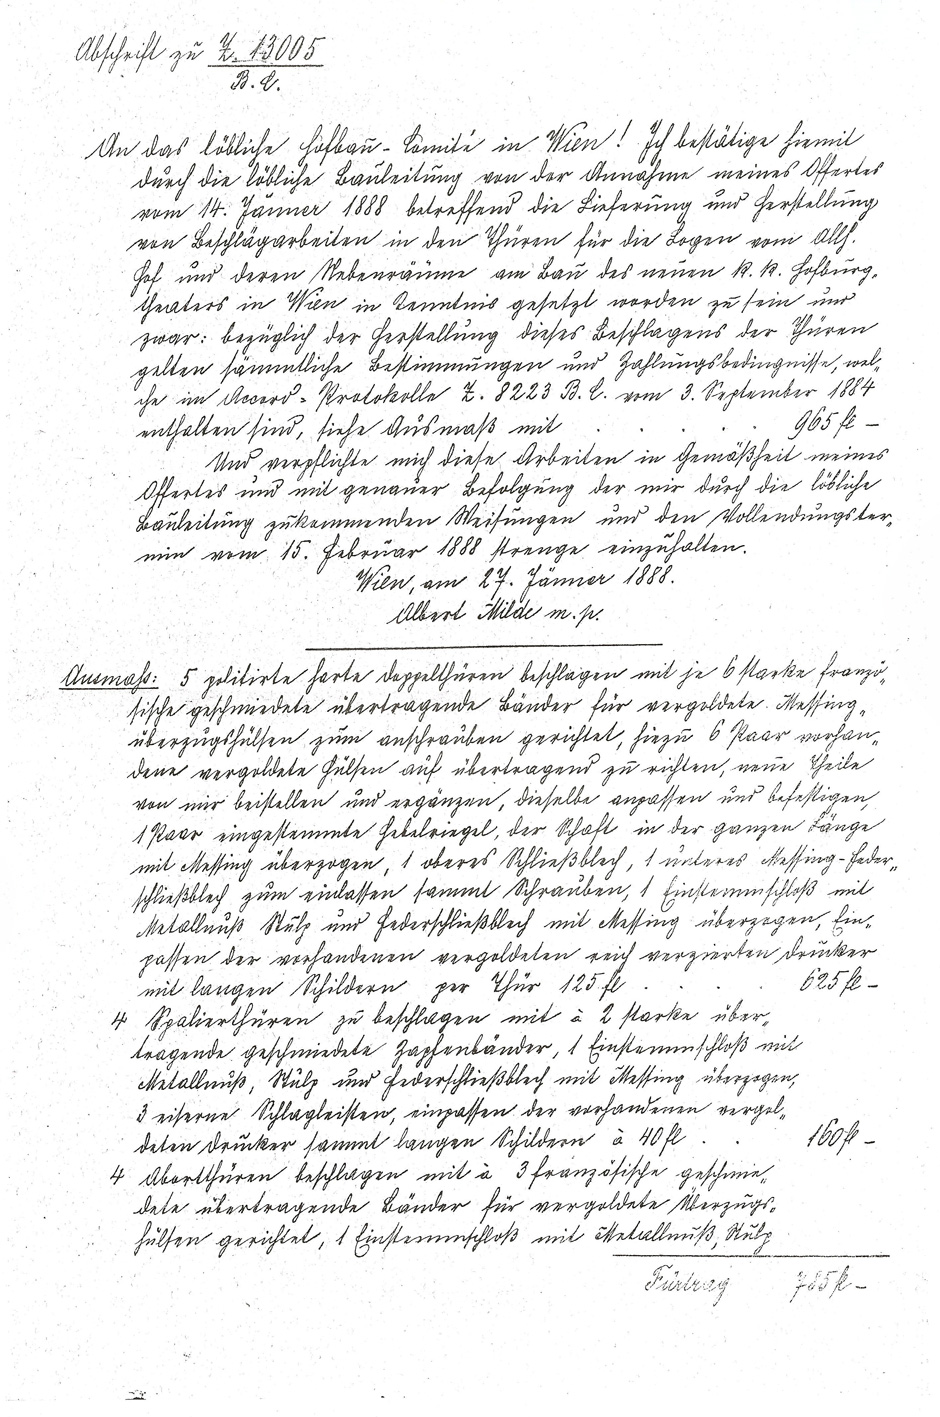 Abschrift zu Z. 13005
B. C.
An das löbliche Hofbau-Comité in Wien! Ich bestätige hiemit
durch die löbliche Bauleitung von der Annahme meines Offertes
vom 14. Jänner 1888 betreffend die Lieferung und Herstellung
von Beschlägarbeiten in den Thüren für die Logen vom Allh.
Hof und deren Nebenräume am Bau des neuen k. k. Hofburg-
theaters in Wien in Kenntnis gesetzt worden zu sein und
zwar: bezüglich der Herstellung dieses Beschlagens der Thüren
gelten sämmtliche Bestimmungen und Zahlungsbedingnisse, wel-
che im Accord-Protokolle Z. 8223 B. C. vom 3. September 1884
enthalten sind, siehe Ausmaß mit . . . . 965 fl –
Und verpflichte mich diese Arbeiten in Gemäßheit meines
Offertes und mit genauer Befolgung der mir durch die löbliche
Bauleitung zukommenden Weisungen und den Vollendungster-
min vom 15. Februar 1888 strenge einzuhalten.
Wien, am 27. Jänner 1888.
Albert Milde m. p.
Ausmass: 5 politirte harte Doppelthüren beschlagen mit je 6 starke franzö-
sische geschmiedete übertragende Bänder für vergoldete Messing-
überzugshülsen zum anschrauben gerichtet, hiezu 6 Paar vorhan-
dene vergoldete Hülsen auf übertragend zu richten, neue Theile
von mir beistellen und ergänzen, dieselbe anpassen und befestigen,
1 Paar eingestemmte Hebelriegel, der Schaft in der ganzen Länge
mit Messing überzogen, 1 oberes Schließblech, 1 unteres Messing-Feder-
schließblech zum einlassen sammt Schrauben, 1 Einstemmschloß mit
Metallnuß Stulp und Federschließblech mit Messing überzogen, Ein-
passen der vorhandenen vergoldeten reich verzierten Drücker
mit langen Schildern per Thür 125 fl . . . . 625 fl –
4 Spalierthüren zu beschlagen mit à 2 starke über-
tragende geschmiedete Zapfenbänder, 1 Einstemmschloß mit
Metallnuß, Stulp und Federschließblech mit Messing überzogen,
3 eiserne Schlagleisten, einpassen der vorhandenen vergol-
deten Drücker sammt langen Schildern à 40 fl . . 160 fl –
4 Abortthüren beschlagen mit à 3 französische geschmie-
dete übertragende Bänder für vergoldete Überzugs-
hülsen gerichtet, 1 Einstemmschloß mit Metallnuß, Stulp
Fürtrag 785 fl –